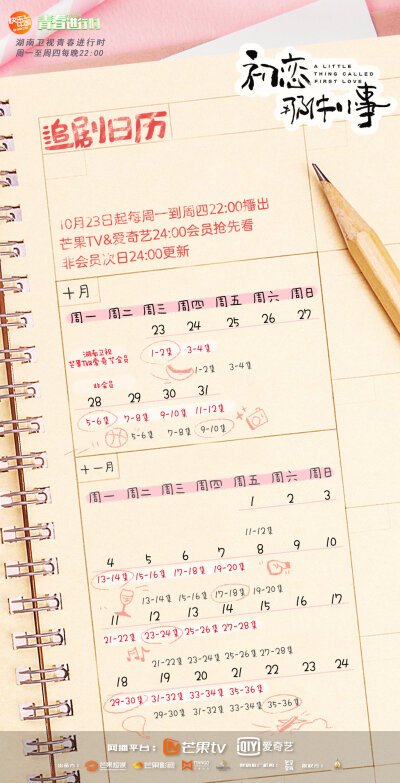 快乐中国
青春进行时
湖南卫视青春进行时
周一至周四每晚22:00
初恋那件小事
A LITTLE
THING CALLED
FIRST LOVE
追剧日历
10月23日起每周一到周四22:00播出
芒果TV&爱奇艺24:00会员抢先看
非会员次日24:00更新
十月
周一 周二 周三 周四 周五 周六 周日
23 24 25 26 27
湖南卫视
芒果TV&爱奇艺会员
1-2集 3-4集
非会员
1-2集 3-4集
28 29 30 31
5-6集 7-8集 9-10集 11-12集
5-6集 7-8集 9-10集
十一月
周一 周二 周三 周四 周五 周六 周日
1 2 3
11-12集
4 5 6 7 8 9 10
13-14集 15-16集 17-18集 19-20集
13-14集 15-16集 17-18集 19-20集
11 12 13 14 15 16 17
21-22集 23-24集 25-26集 27-28集
21-22集 23-24集 25-26集 27-28集
18 19 20 21 22 23 24
29-30集 31-32集 33-34集 35-36集
29-30集 31-32集 33-34集 35-36集
网播平台: 芒果tv iQIYI 爱奇艺
出品方: 芒果超媒 芒果影视 MANGO